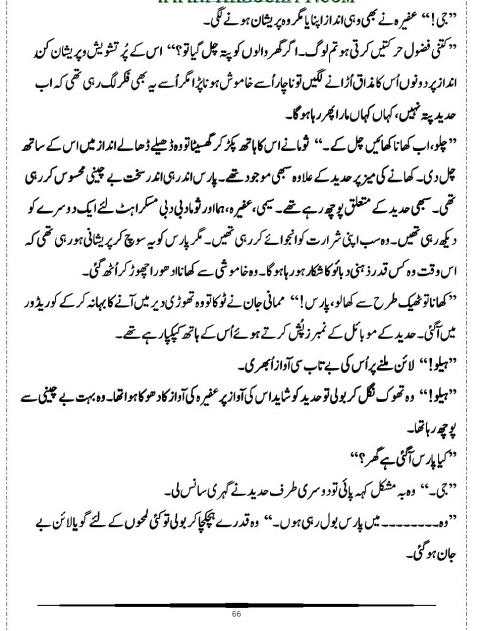 ”جی!“ عفیرہ نے بھی وہی انداز اپنایا مگر وہ پریشان ہونے لگی۔
”کتنی فضول حرکتیں کرتی ہو تم لوگ۔ اگر گھر والوں کو پتہ چل گیا تو؟“ اس کے پُر تشویش و پریشان کن
انداز پر دونوں اُس کا مذاق اُڑانے لگیں تو ناچار اُسے خاموش ہونا پڑا مگر اُسے یہ بھی فکر لگ رہی تھی کہ اب
حدید پتہ نہیں، کہاں کہاں مارا پھر رہا ہوگا۔
”چلو، اب کھانا کھائیں چل کے۔“ ثوما نے اس کا ہاتھ پکڑ کر گھسیٹا تو وہ ڈھیلے ڈھالے انداز میں اس کے ساتھ
چل دی۔ کھانے کی میز پر حدید کے علاوہ سبھی موجود تھے۔ پارس اندر ہی اندر سخت بے چینی محسوس کر رہی
تھی۔ سبھی حدید کے متعلق پوچھ رہے تھے۔ سیمی، عفیرہ، ہما اور ثوما دبی دبی مسکراہٹ لئے ایک دوسرے کو
دیکھ رہی تھیں۔ وہ سب اپنی شرارت کو انجوائے کر رہی تھیں۔ مگر پارس کو یہ سوچ کر پریشانی ہو رہی تھی کہ
اس وقت وہ کس قدر ذہنی دبائو کا شکار ہو رہا ہوگا۔ وہ خاموشی سے کھانا ادھورا چھوڑ کر اُٹھ گئی۔
”کھانا تو ٹھیک طرح سے کھا لو، پارس!“ ممانی جان نے ٹوکا تو وہ تھوڑی دیر میں آنے کا بہانہ کر کے کوریڈور
میں آگئی۔ حدید کے موبائل کے نمبرز پُش کرتے ہوئے اُس کے ہاتھ کپکپا رہے تھے۔
”ہیلو!“ لائن ملنے پر اُس کی بے تاب سی آواز اُبھری۔
”ہیلو!“ وہ تھوک نگل کر بولی تو حدید کو شاید اس کی آواز پر عفیرہ کی آواز کا دھوکا ہوا تھا۔ وہ بہت بے چینی سے
پوچھ رہا تھا۔
”کیا پارس آگئی ہے گھر؟“
”جی۔“ وہ بہ مشکل کہہ پائی تو دوسری طرف حدید نے گہری سانس لی۔
”وہ۔۔۔۔۔۔۔۔ میں پارس بول رہی ہوں۔“ وہ قدرے ہچکچا کر بولی تو کئی لمحوں کے لئے گویا لائن بے
جان ہو گئی۔
66